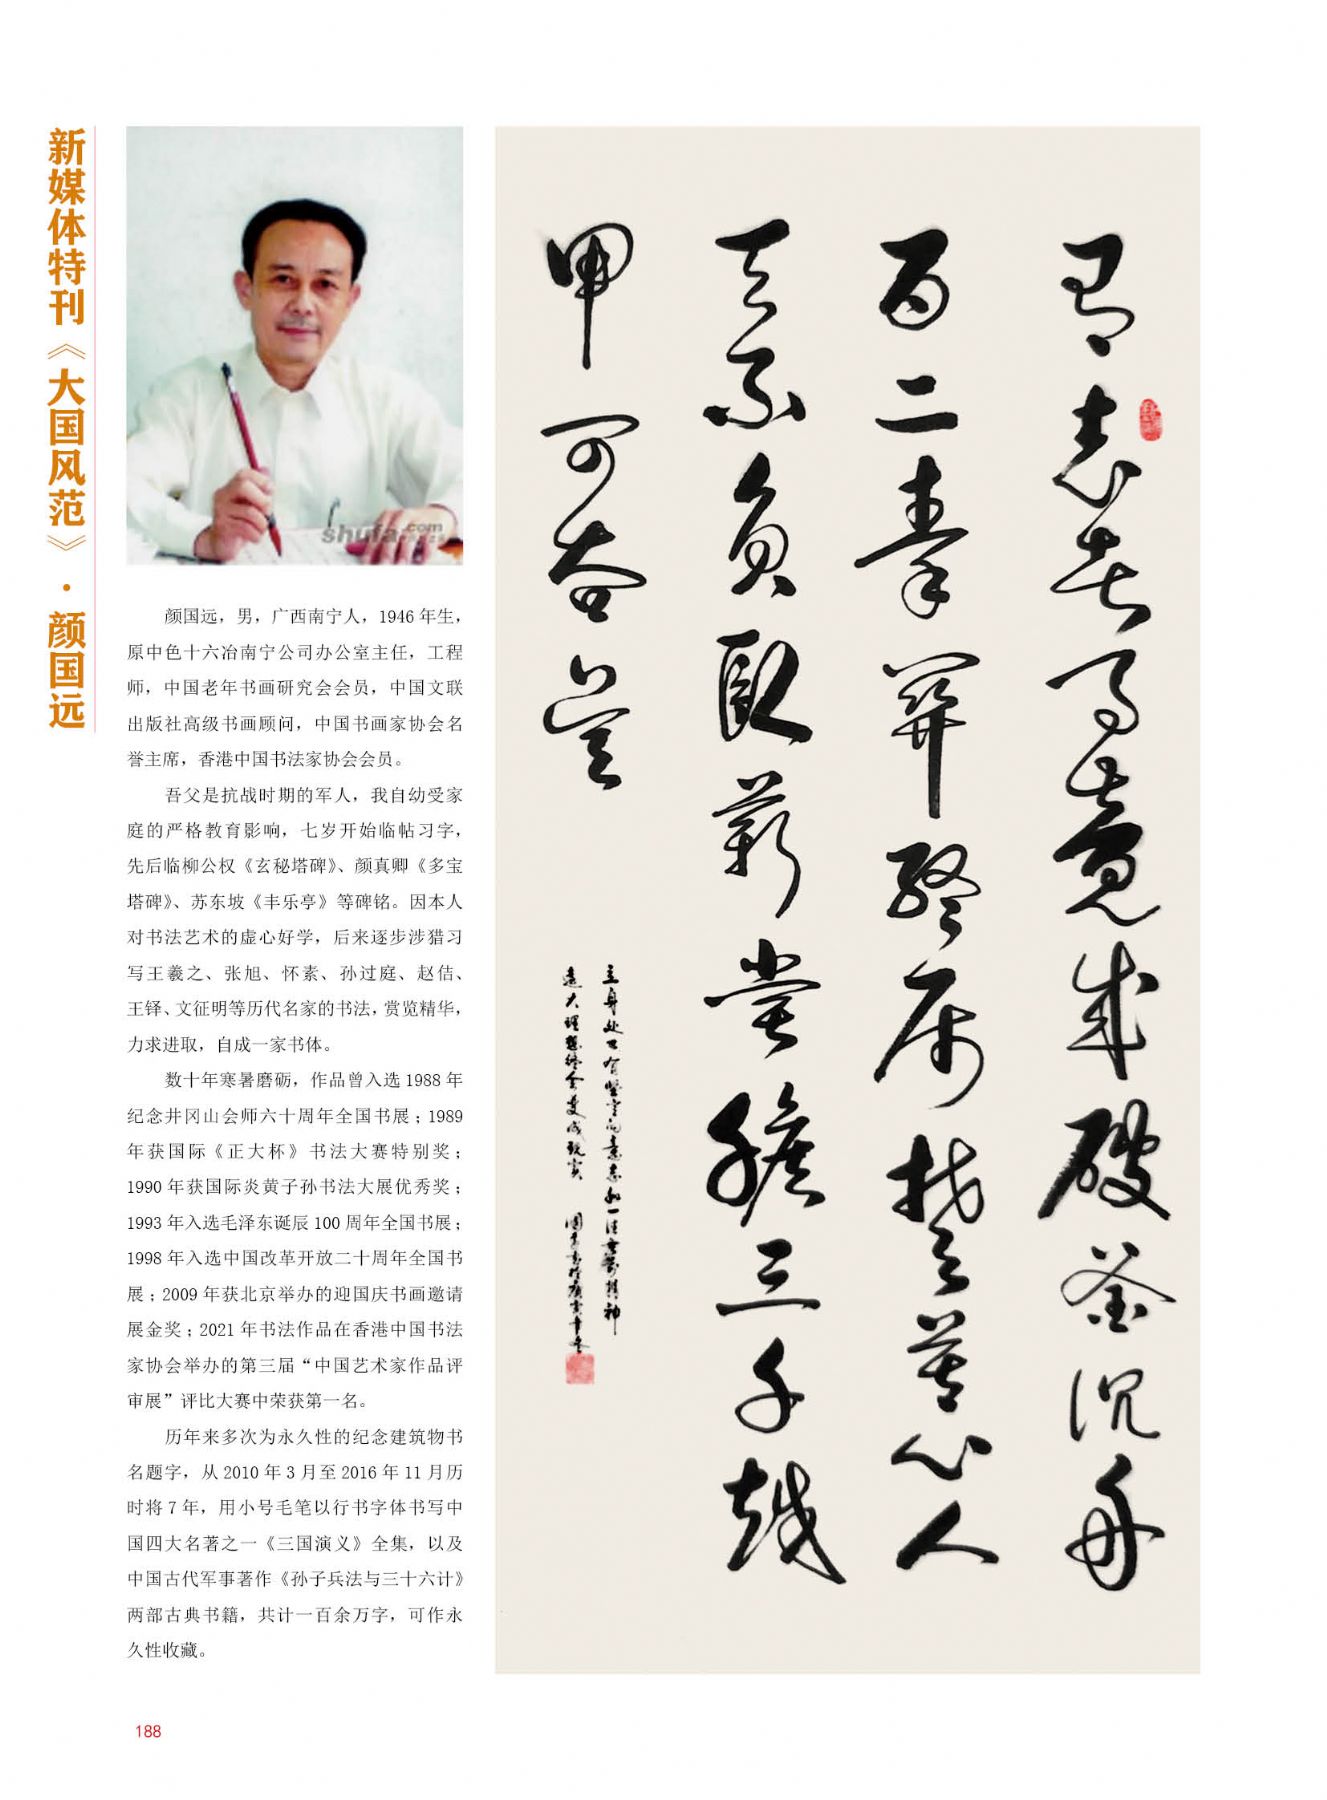 新媒体特刊《大国风范》·颜国远
shufa.com
颜国远，男，广西南宁人，1946年生，
原中色十六冶南宁公司办公室主任，工程
师，中国老年书画研究会会员，中国文联
出版社高级书画顾问，中国书画家协会名
誉主席，香港中国书法家协会会员。
吾父是抗战时期的军人，我自幼受家
庭的严格教育影响，七岁开始临帖习字，
先后临柳公权《玄秘塔碑》、颜真卿《多宝
塔碑》、苏东坡《丰乐亭》等碑铭。因本人
对书法艺术的虚心好学，后来逐步涉猎习
写王羲之、张旭、怀素、孙过庭、赵佶、
王铎、文征明等历代名家的书法，赏览精华，
力求进取，自成一家书体。
数十年寒暑磨砺，作品曾入选1988年
纪念井冈山会师六十周年全国书展；1989
年获国际《正大杯》书法大赛特别奖；
1990年获国际炎黄子孙书法大展优秀奖；
1993年入选毛泽东诞辰100周年全国书展；
1998年入选中国改革开放二十周年全国书
展；2009年获北京举办的迎国庆书画邀请
展金奖；2021年书法作品在香港中国书法
家协会举办的第三届“中国艺术家作品评
审展”评比大赛中荣获第一名。
历年来多次为永久性的纪念建筑物书
名题字，从2010年3月至2016年11月历
时将7年，用小号毛笔以行书字体书写中
国四大名著之一《三国演义》全集，以及
中国古代军事著作《孙子兵法与三十六计》
两部古典书籍，共计一百余万字，可作永
久性收藏。
有志者事竟成破釜沉舟
百二秦关终属楚苦心人
天不负卧薪尝胆三千越
甲可吞吴
立身处世有坚定的意志和一往无前精神
远大理想终会变成现实 国远书于庚寅年冬
188